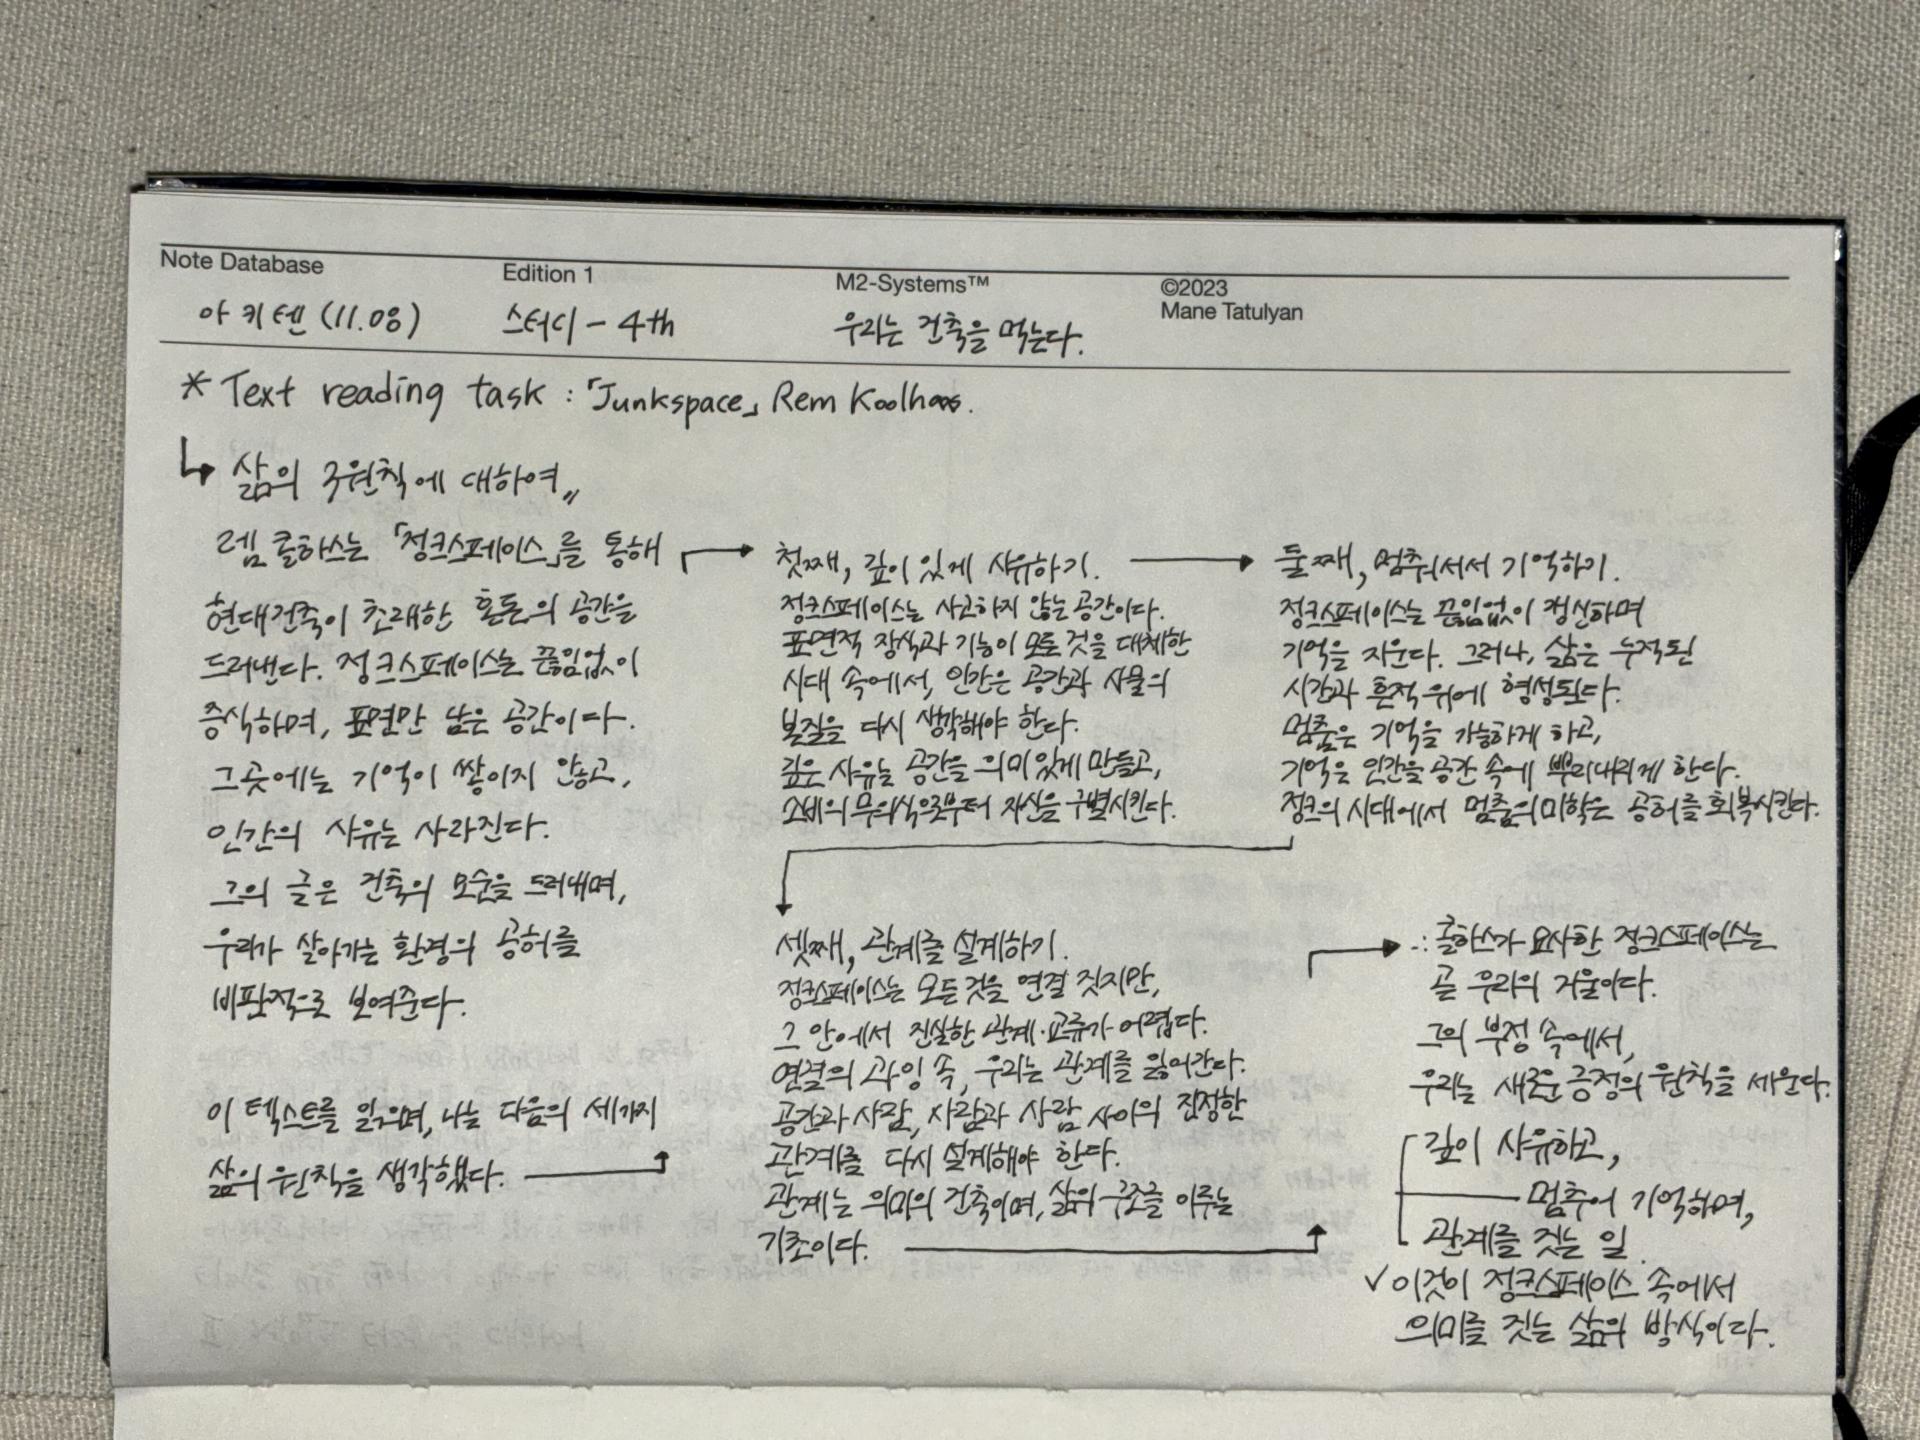 Note Database
Edition 1
M2-Systems™
©2023
Mane Tatulyan
아키텐 (11.08)
스터디 - 4th
우리는 건축을 먹는다.
* Text reading task : 「Junkspace」 Rem Koolhaas.
↳ 삶의 3원칙에 대하여〃
렘 콜하스는 「정크스페이스」를 통해
현대건축이 초래한 혼돈의 공간을
드러낸다. 정크스페이스는 끊임없이
증식하며, 표면만 남은 공간이다.
그곳에는 기억이 쌓이지 않고,
인간의 사유는 사라진다.
그의 글은 건축의 모순을 드러내며,
우리가 살아가는 환경의 공허를
비판적으로 보여준다.
이 텍스트를 읽으며, 나는 다음의 세가지
삶의 원칙을 생각했다.
첫째, 깊이 있게 사유하기.
정크스페이스는 사고하지 않는 공간이다.
표면적 장식과 기능이 모든 것을 대체한
시대 속에서, 인간은 공간과 사물의
본질을 다시 생각해야 한다.
깊은 사유는 공간을 의미있게 만들고,
소비의 무의식으로부터 자신을 구별시킨다.
둘째, 멈춰서서 기억하기.
정크스페이스는 끊임없이 갱신하며
기억을 지운다. 그러나, 삶은 누적된
시간과 흔적 위에 형성된다.
멈춤은 기억을 가능하게 하고,
기억은 인간을 공간 속에 뿌리내리게 한다.
정크의 시대에서 멈춤의 미학은 공허를 회복시킨다.
셋째, 관계를 설계하기.
정크스페이스는 모든 것을 연결 짓지만,
그 안에서 진실한 관계·교류가 어렵다.
연결의 과잉 속, 우리는 관계를 잃어간다.
공간과 사람, 사람과 사람 사이의 진정한
관계를 다시 설계해야 한다.
관계는 의미의 건축이며, 삶의 구조를 이루는
기초이다.
∴ 콜하스가 묘사한 정크스페이스는
곧 우리의 거울이다.
그의 부정 속에서,
우리는 새로운 긍정의 원칙을 세운다.
깊이 사유하고,
멈추어 기억하며,
관계를 짓는 일.
✓ 이것이 정크스페이스 속에서
의미를 짓는 삶의 방식이다.